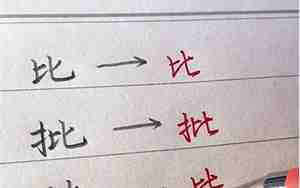 比 → 比
批 → 批